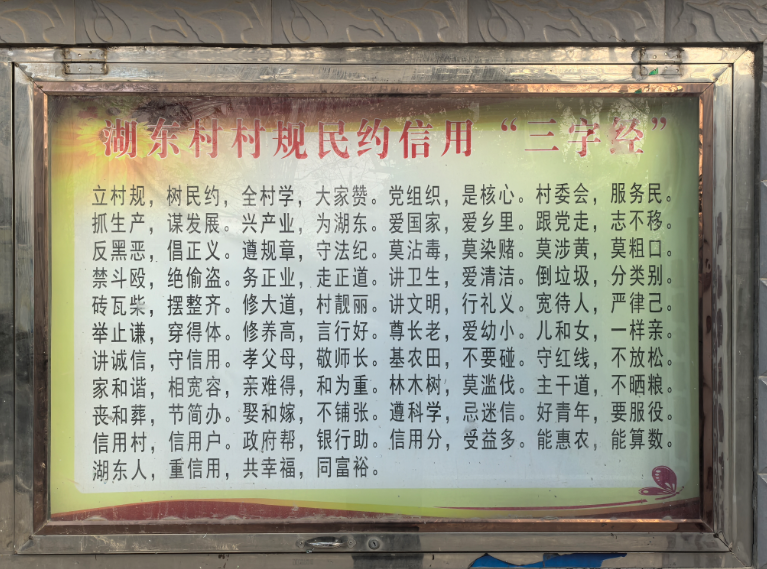 湖东村村规民约信用“三字经”
立村规，树民约，全村学，大家赞。党组织，是核心。村委会，服务民。
抓生产，谋发展。兴产业，为湖东。爱国家，爱乡里。跟党走，志不移。
反黑恶，倡正义。遵规章，守法纪。莫沾毒，莫染赌。莫涉黄，莫粗口。
禁斗殴，绝偷盗。务正业，走正道。讲卫生，爱清洁。倒垃圾，分类别。
砖瓦柴，摆整齐。修大道，村靓丽。讲文明，行礼义。宽待人，严律己。
举止谦，穿得体。修养高，言行好。尊长老，爱幼小。儿和女，一样亲。
讲诚信，守信用。孝父母，敬师长。基农田，不要碰。守红线，不放松。
家和谐，相宽容，亲难得，和为重。林木树，莫滥伐。主干道，不晒粮。
丧和葬，节简办。娶和嫁，不铺张。遵科学，忌迷信。好青年，要服役。
信用村，信用户。政府帮，银行助。信用分，受益多。能惠农，能算数。
湖东人，重信用，共幸福，同富裕。